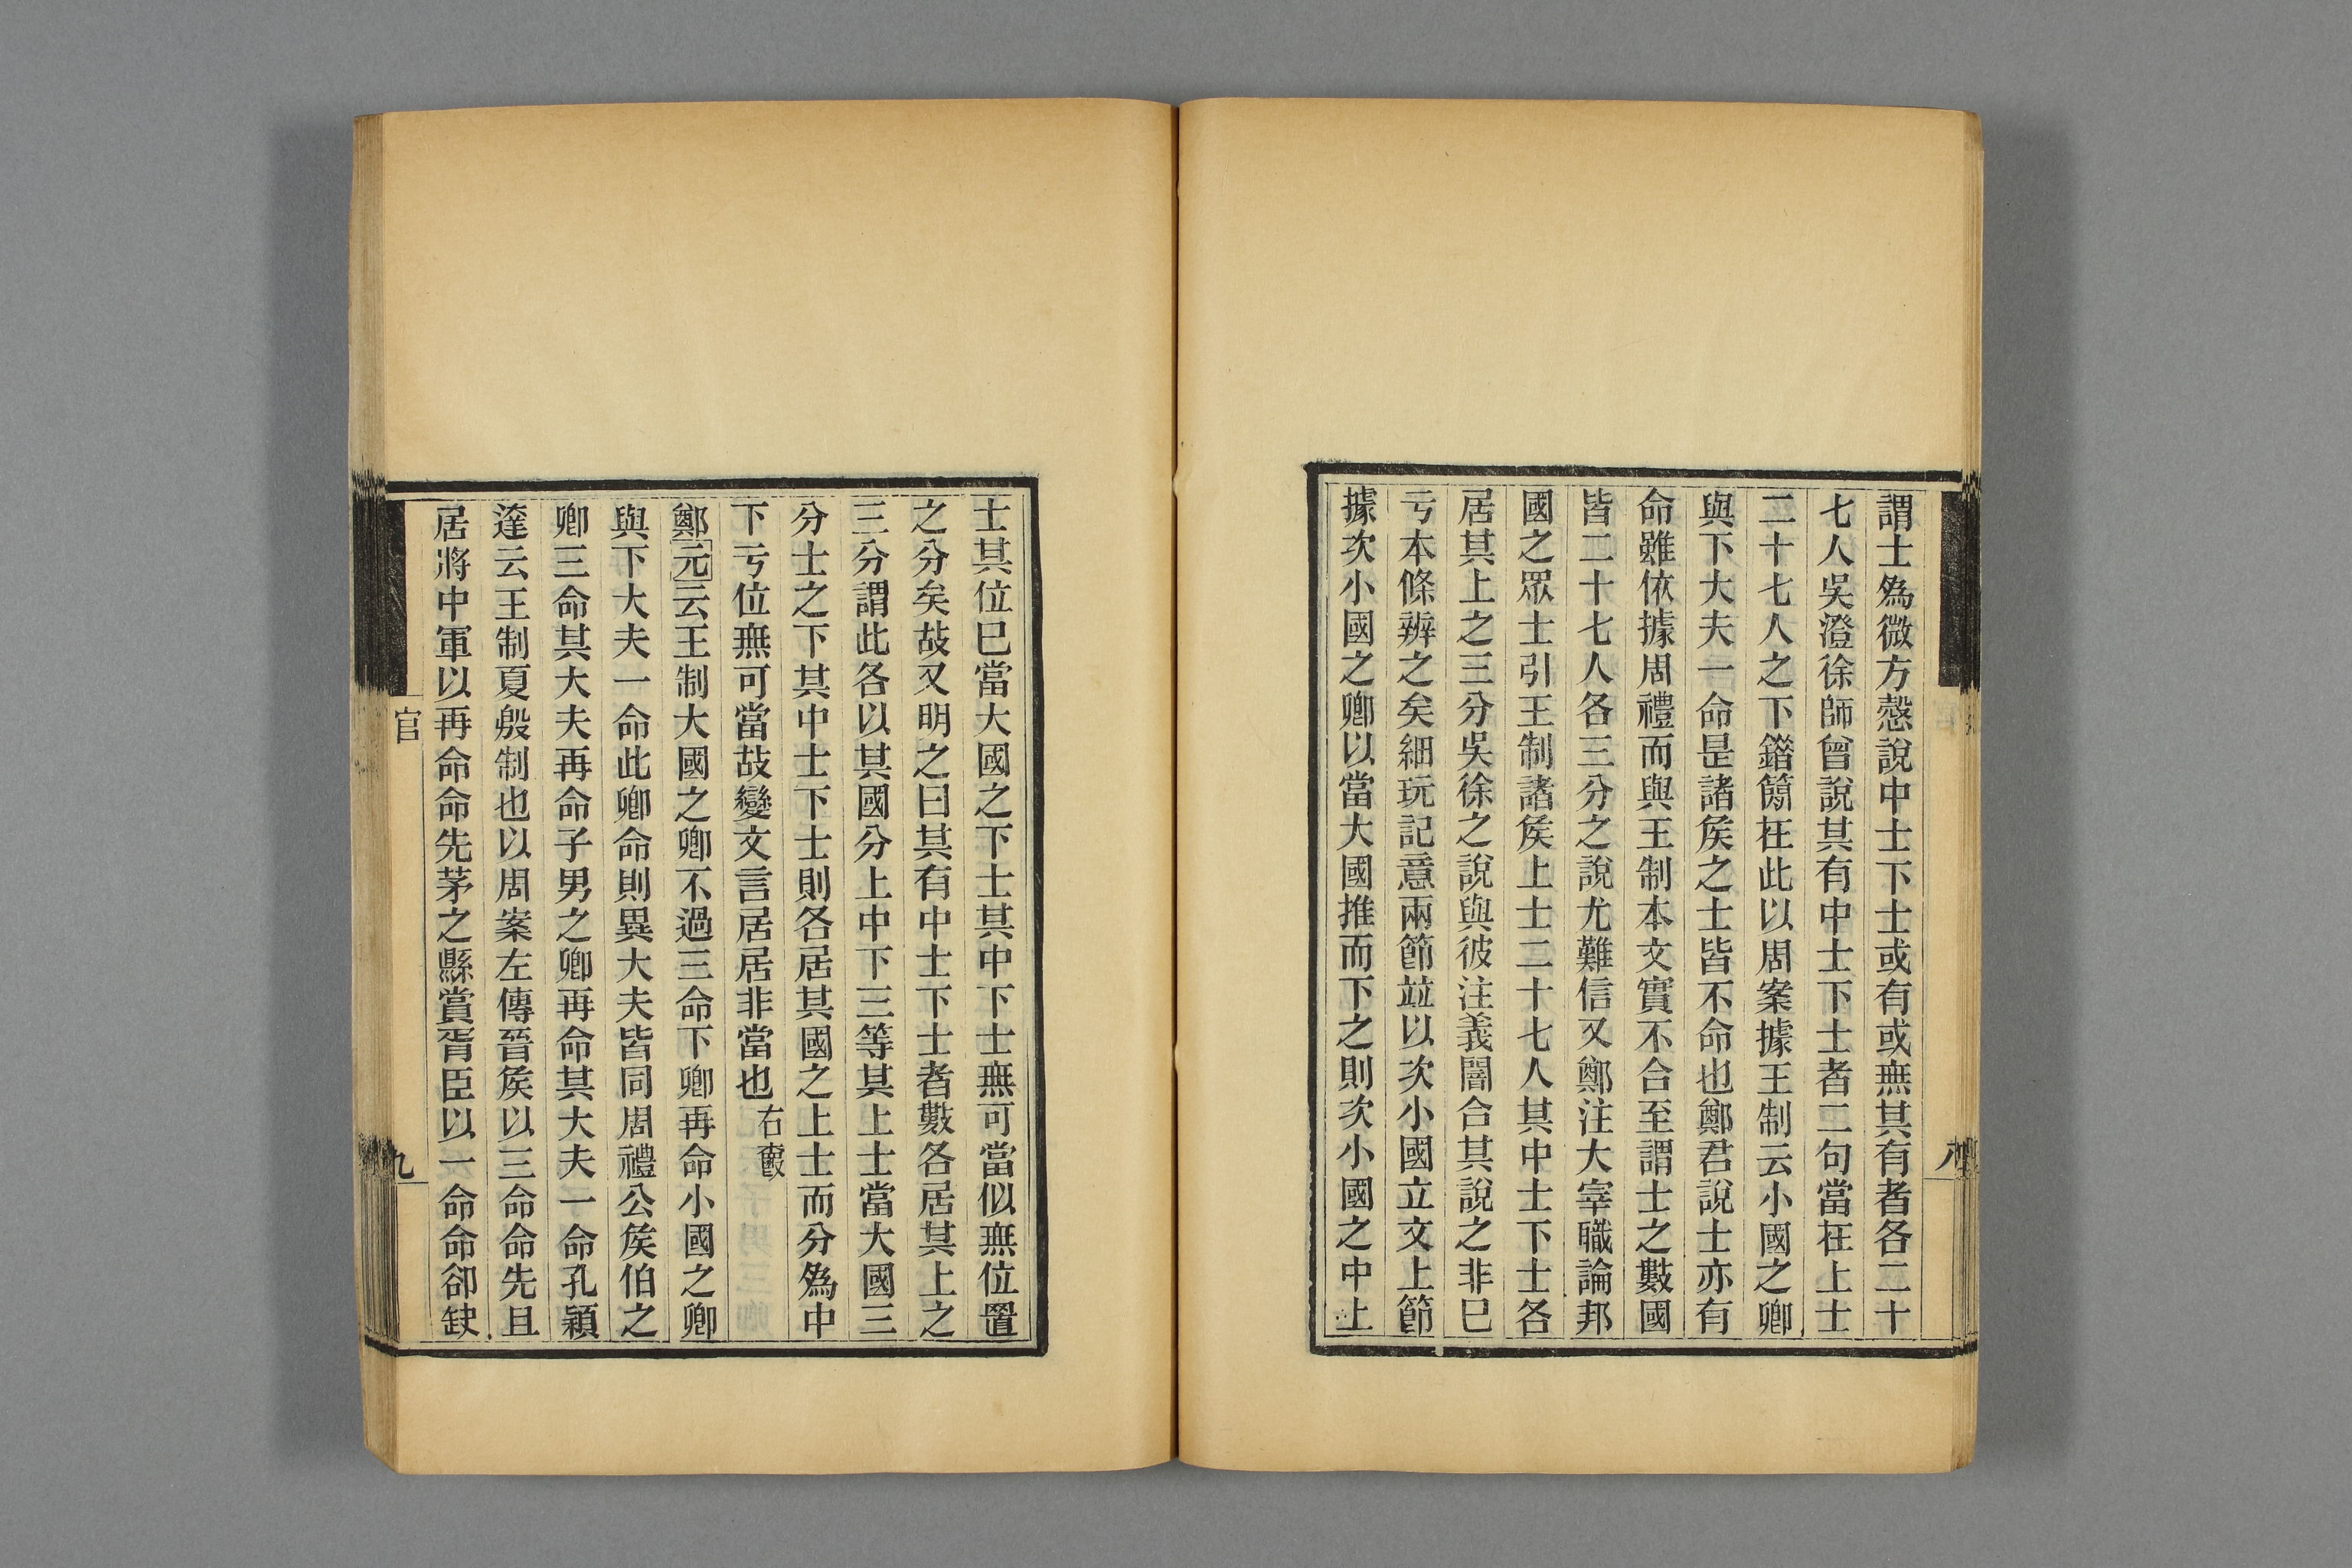 謂士爲微方愨說中士下士或有或無其有者各二十
七人吳澄徐師曾說其有中士下士者二句當在上士
二十七人之下錯簡在此以周案據王制云小國之卿
與下大夫一命是諸侯之士皆不命也鄭君說士亦有
命雖依據周禮而與王制本文實不合至謂士之數國
皆二十七人各三分之說尤難信又鄭注大宰職論邦
國之眾士引王制諸侯上士二十七人其中士下士各
居其上之三分吳徐之說與彼注義闇合其說之非已
亏本條辨之矣細玩記意兩節竝以次小國立文上節
據次小國之卿以當大國推而下之則次小國之中上
八
士其位已當大國之下士其中下士無可當似無位置
之分矣故又明之曰其有中士下士者數各居其上之
三分謂此各以其國分上中下三等其上士當大國三
分士之下其中士下士則各居其國之上士而分爲中
下亏位無可當故變文言居居非當也右
鄭元云王制大國之卿不過三命下卿再命小國之卿
與下大夫一命此卿命則異大夫皆同周禮公侯伯之
卿三命其大夫再命子男之卿再命其大夫一命孔穎
達云王制夏殷制也以周案左傳晉侯以三命命先且
居將中軍以再命命先茅之縣賞胥臣以一命命郤缺
官
九